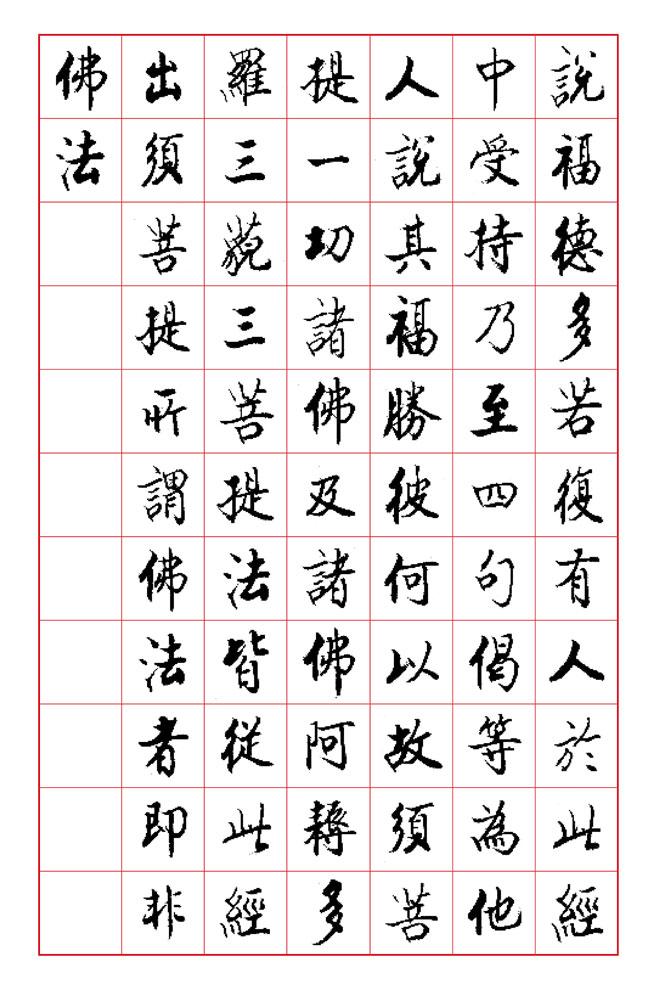 說福德多若復有人於此經
中受持乃至四句偈等為他
人說其福勝彼何以故須菩
提一切諸佛及諸佛阿耨多
羅三藐三菩提法皆從此經
出須菩提所謂佛法者即非
佛法